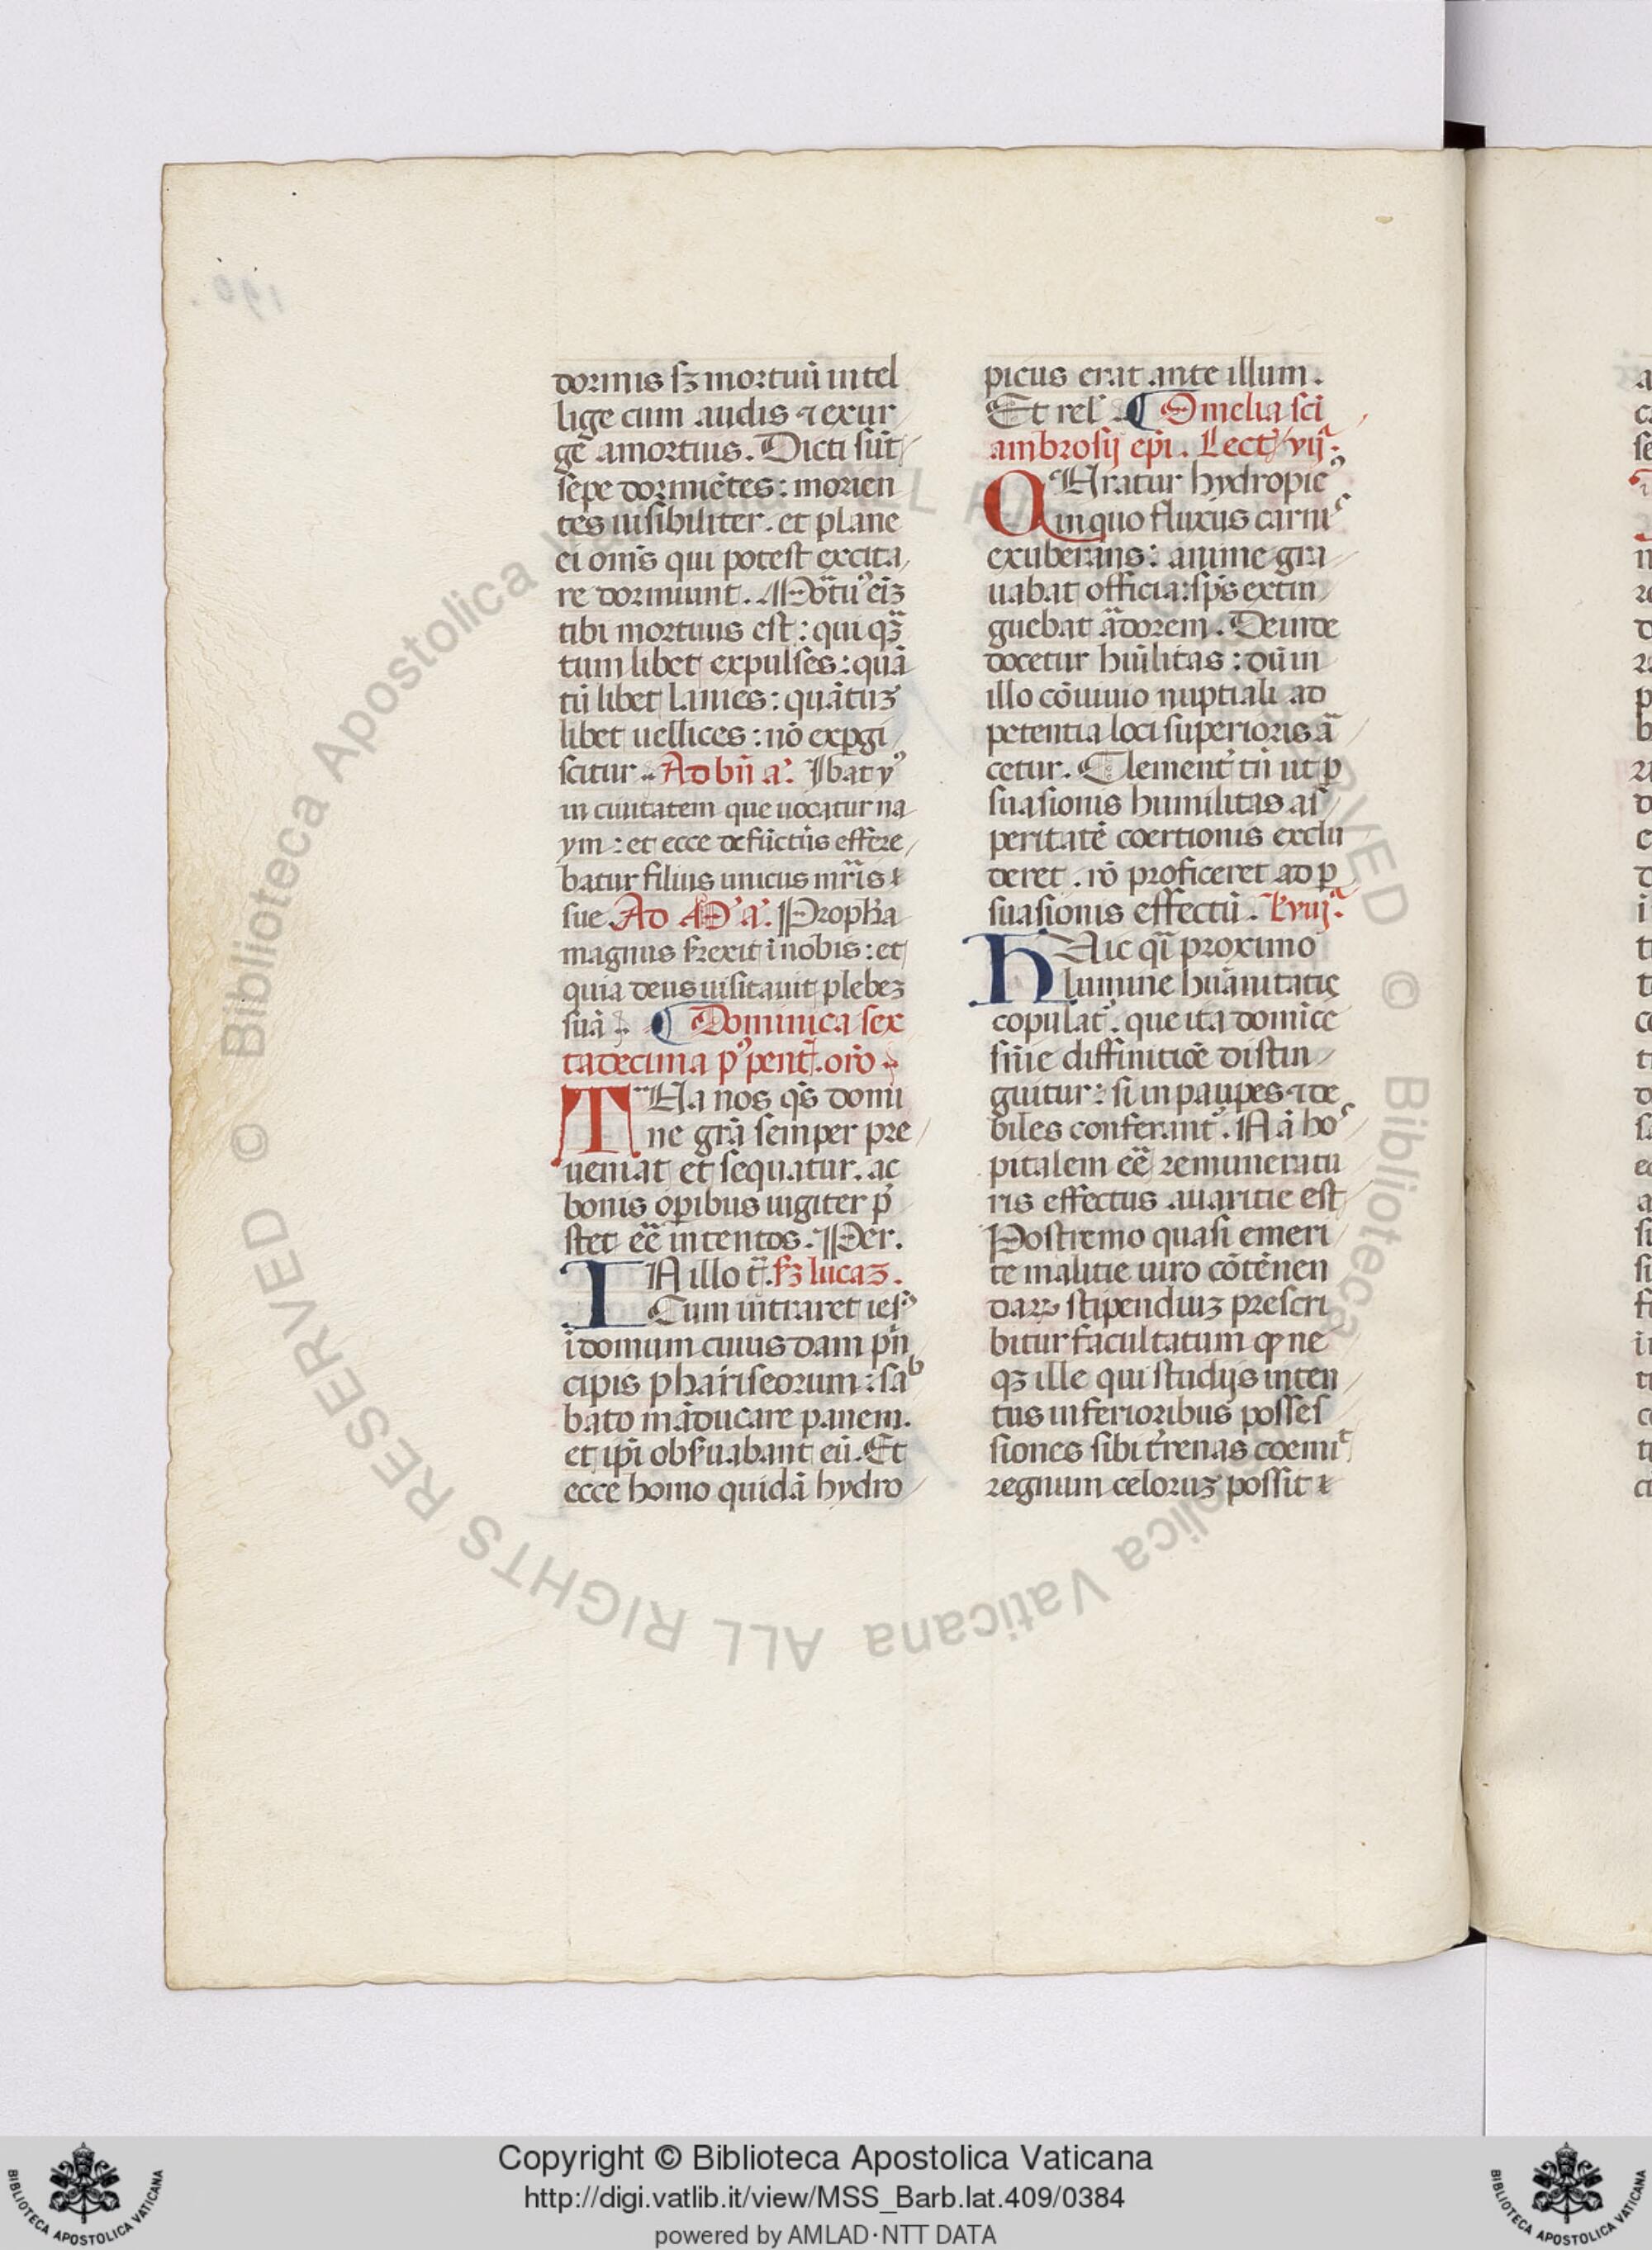 dormis sʒ mortuū intel
lige cum audis ⁊ exur
gē amortuis. Dicti sūt
sepe dormiētes: morien
tes uisibiliter. et plane
ei oms̄ qui potest excita
re dormiunt. Mōtuꝰ eīʒ
tibi mortuus est: qui qʒ̄
tum libet expulses: quā
tū libet lanies: quātuʒ
libet uellices: nō exꝑgi
scitur. Ad bn̄ a. Ibat yꝰ
in ciuitatem que uocatur na
ym: et ecce defūctus effere
batur filius unicus mr̄is
sue. Ad M̄ a. Propħa
magnus sr̄rexit ī nobis: et
quia deus uisitauit plebeʒ
suā. ¶ Dominica sex
tadecima pꝰ pent̄. orō
THa nos qs̄ domi
ne grā semper pre
ueniat et sequatur. ac
bonis oꝑibus iugiter p̄
stet eē intentos. Per.
IN illo t̄. sʒ lucaʒ.
Cum intraret iesꝰ
ī domum cuiusdam pn̄
cipis phariseorum: sab
bato māducare panem.
et ip̄i obsuabant eū. Et
ecce homo quidā hydro
picus erat ante illum.
Et rel. ¶ Omelia sc̄i
ambrosij ep̄i. Lect. vij.
CUratur hydropicꝰ
in quo fluxus carnis
exuberans: anime gra
uabat officia: sp̄s extin
guebat ādorem. Deinde
docetur hūilitas: dū in
illo cōuiuio nuptiali ad
petentia loci superioris ā
cetur. Clement̄ tn̄ ut ꝑ
suasionis humilitas as
peritatē coertionis exclu
deret. rō proficeret ad ꝑ
suasionis effectū. L. viij.
HUic qī proximo
lumine huānitatis
copulat̄. que ita domīce
sn̄ie diffinitiōe distin
guitur: si in pauꝑes ⁊ de
biles conferantꝰ. Nā hos
pitalem eē remuneratu
ris effectus auaritie est
Postremo quasi emeri
te malitie uiro cōtēnen
darꝝ stipendiuʒ prescri
bitur facultatum ꝙ ne
qʒ ille qui studijs inten
tus inferioribus posses
siones sibi tr̄renas coemit
regnum celoruʒ possit
Copyright © Biblioteca Apostolica Vaticana
http://digi.vatlib.it/view/MSS_Barb.lat.409/0384
powered by AMLAD·NTT DATA
BIBLIOTECA APOSTOLICA VATICANA
BIBLIOTECA APOSTOLICA VATICANA
© Biblioteca Apostolica Vaticana ALL RIGHTS RESERVED © Biblioteca Apostolica Vaticana ALL RIGHTS RESERVED